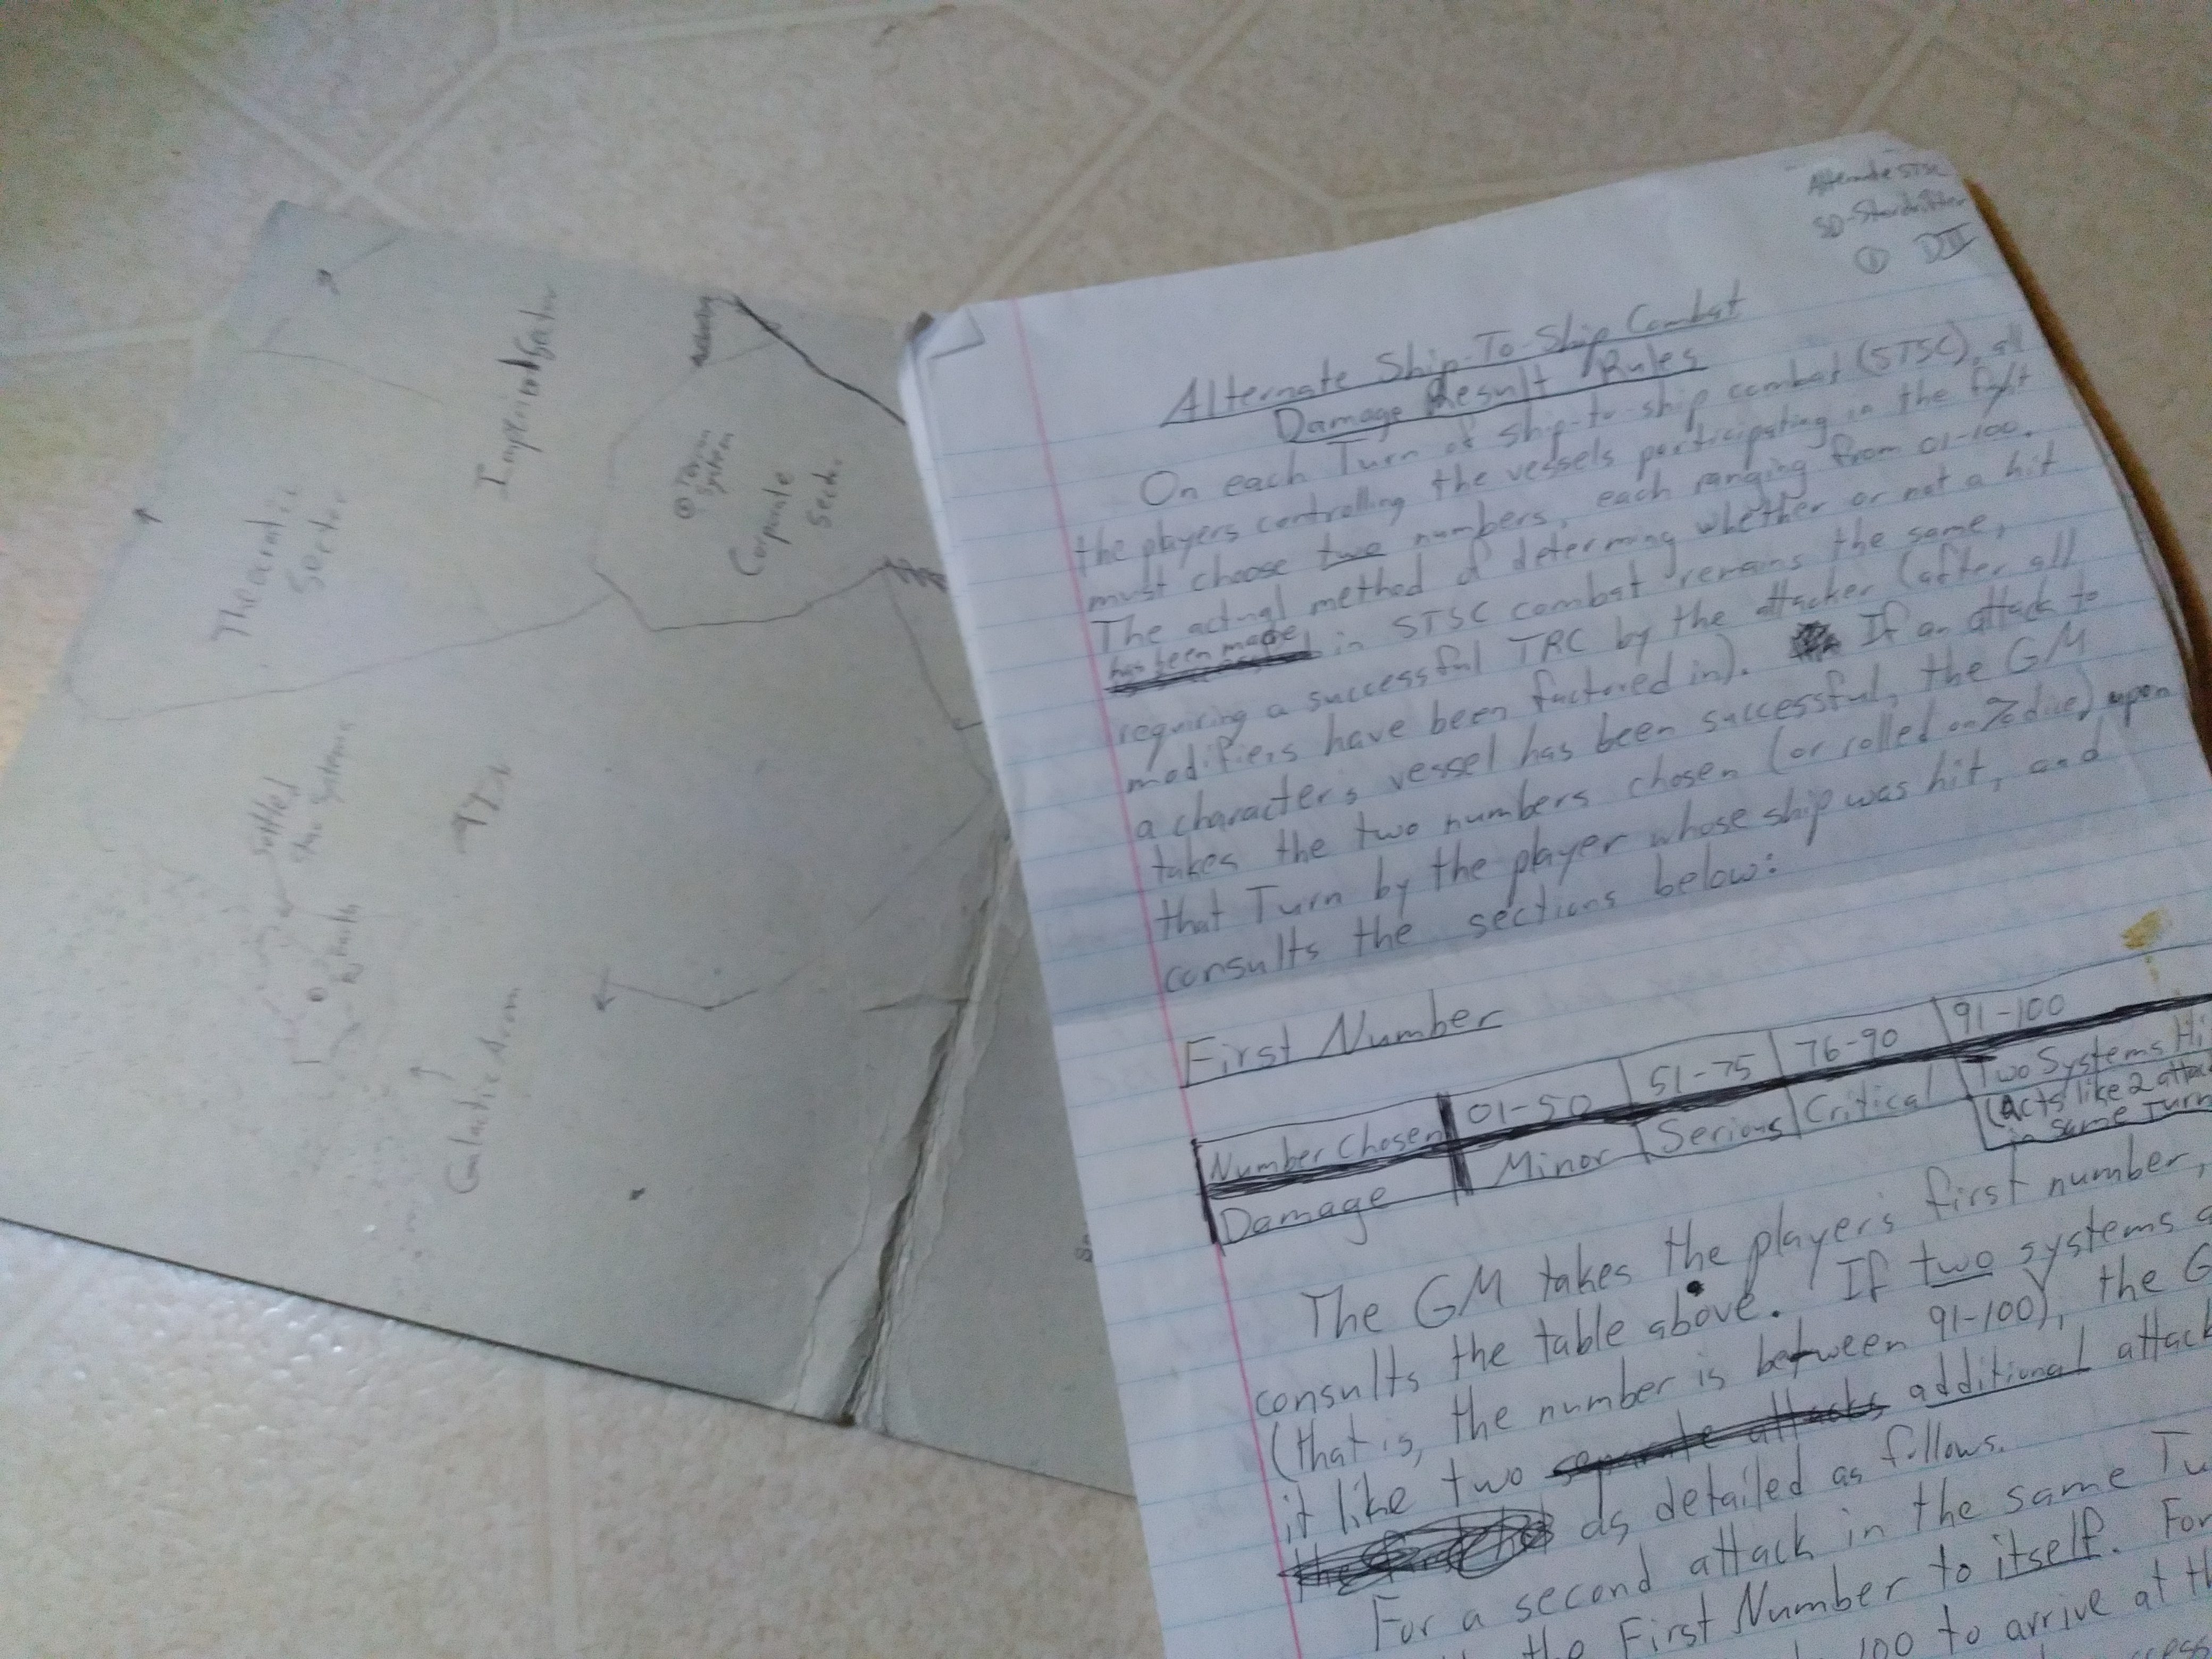 Alternate STSC
SD-Stardrifter
① DIII
Alternate Ship-To-Ship Combat
Damage Result Rules
On each Turn of ship-to-ship combat (STSC), all
the players controlling the vessels participating in the fight
must choose two numbers, each ranging from 01-100.
The actual method of determing whether or not a hit
has been made in STSC combat remains the same,
requiring a successful TRC by the attacker (after all
modifiers have been factored in). If an attack to
a characters vessel has been successful, the GM
takes the two numbers chosen (or rolled on % dice) upon
that Turn by the player whose ship was hit, and
consults the sections below:
First Number
Number Chosen 01-50 51-75 76-90 91-100
Damage Minor Serious Critical Two Systems Hi
(Acts like 2 attac
in same Turn
The GM takes the player's first number,
consults the table above. If two systems a
(that is, the number is between 91-100), the G
it like two separate attacks additional attack
the first hit as detailed as follows.
For a second attack in the same Tu
the First Number to itself. For
100 to arrive at th
Theocratic
Sector
Imperial
Torian
System
Corporate
Sect.
Settled
Star Systems
Galactic Arm